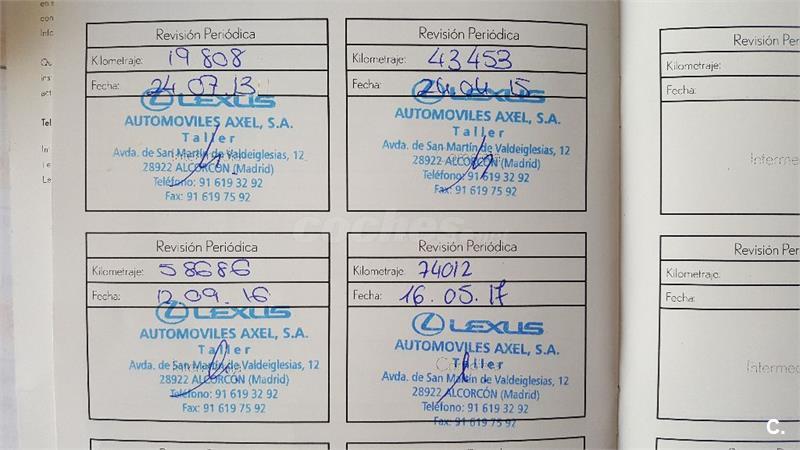 Revisión Periódica
Kilometraje: 19808
Fecha: 24.07.13
LEXUS
AUTOMOVILES AXEL, S.A.
Taller
Avda. de San Martín de Valdeiglesias, 12
28922 ALCORCÓN (Madrid)
Teléfono: 91 619 32 92
Fax: 91 619 75 92
Revisión Periódica
Kilometraje: 43453
Fecha: 24.04.15
LEXUS
AUTOMOVILES AXEL, S.A.
Taller
Avda. de San Martín de Valdeiglesias, 12
28922 ALCORCÓN (Madrid)
Teléfono: 91 619 32 92
Fax: 91 619 75 92
Revisión Periódica
Kilometraje: 58686
Fecha: 12.09.16
LEXUS
AUTOMOVILES AXEL, S.A.
Taller
Avda. de San Martín de Valdeiglesias, 12
28922 ALCORCÓN (Madrid)
Teléfono: 91 619 32 92
Fax: 91 619 75 92
Revisión Periódica
Kilometraje: 74012
Fecha: 16.05.17
LEXUS
AUTOMOVILES AXEL, S.A.
Taller
Avda. de San Martín de Valdeiglesias, 12
28922 ALCORCÓN (Madrid)
Teléfono: 91 619 32 92
Fax: 91 619 75 92
Revisión Perió
Kilometraje:
Fecha:
Intermed
Revisión Perió
Kilometraje:
Fecha:
Intermed
coches.net
C.